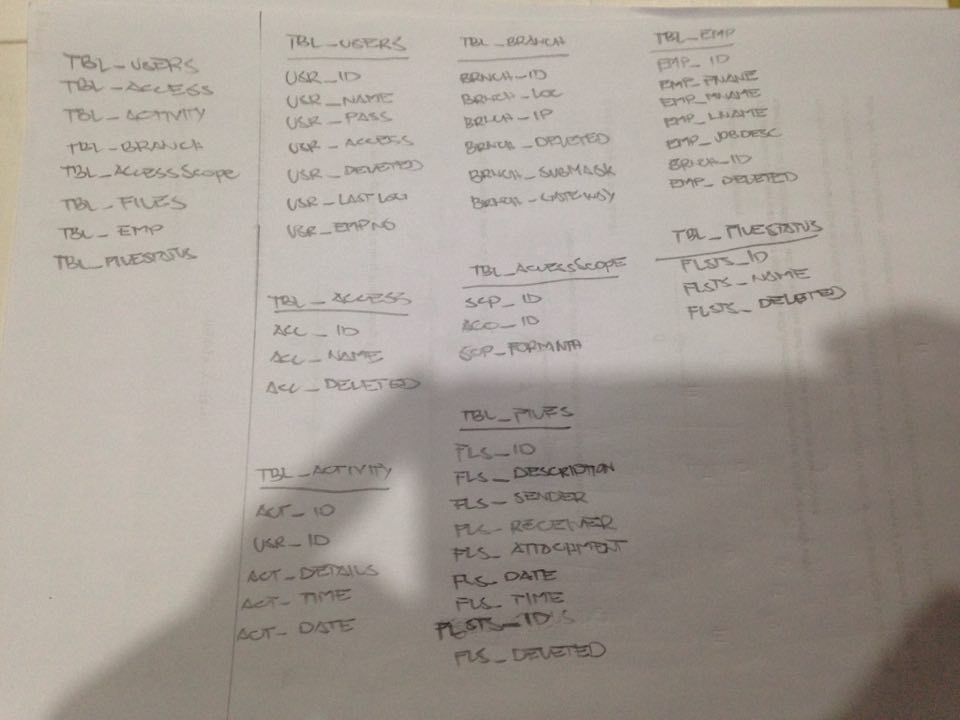 TBL_USERS
TBL_ACCESS
TBL_ACTIVITY
TBL_BRANCH
TBL_ACCESSSCOPE
TBL_FILES
TBL_EMP
TBL_FILESTATUS
TBL_USERS
USR_ID
USR_NAME
USR_PASS
USR_ACCESS
USR_DELETED
USR_LASTLOG
USR_EMPNO
TBL_ACCESS
ACC_ID
ACC_NAME
ACC_DELETED
TBL_ACTIVITY
ACT_ID
USR_ID
ACT_DETAILS
ACT_TIME
ACT_DATE
TBL_BRANCH
BRNCH_ID
BRNCH_LOC
BRNCH_IP
BRNCH_DELETED
BRNCH_SUBMASK
BRNCH_GATEWAY
TBL_ACCESSSCOPE
SCP_ID
ACC_ID
TBL_FILES
FLS_ID
FLS_DESCRIPTION
FLS_SENDER
FLS_RECEIVER
FLS_ATTACHMENT
FLS_DATE
FLS_TIME
FLSTS_ID
FLS_DELETED
TBL_EMP
EMP_ID
EMP_FNAME
EMP_MNAME
EMP_LNAME
EMP_JOBDESC
BRNCH_ID
EMP_DELETED
TBL_FILESTATUS
FLSTS_ID
FLSTS_NAME
FLSTS_DELETED